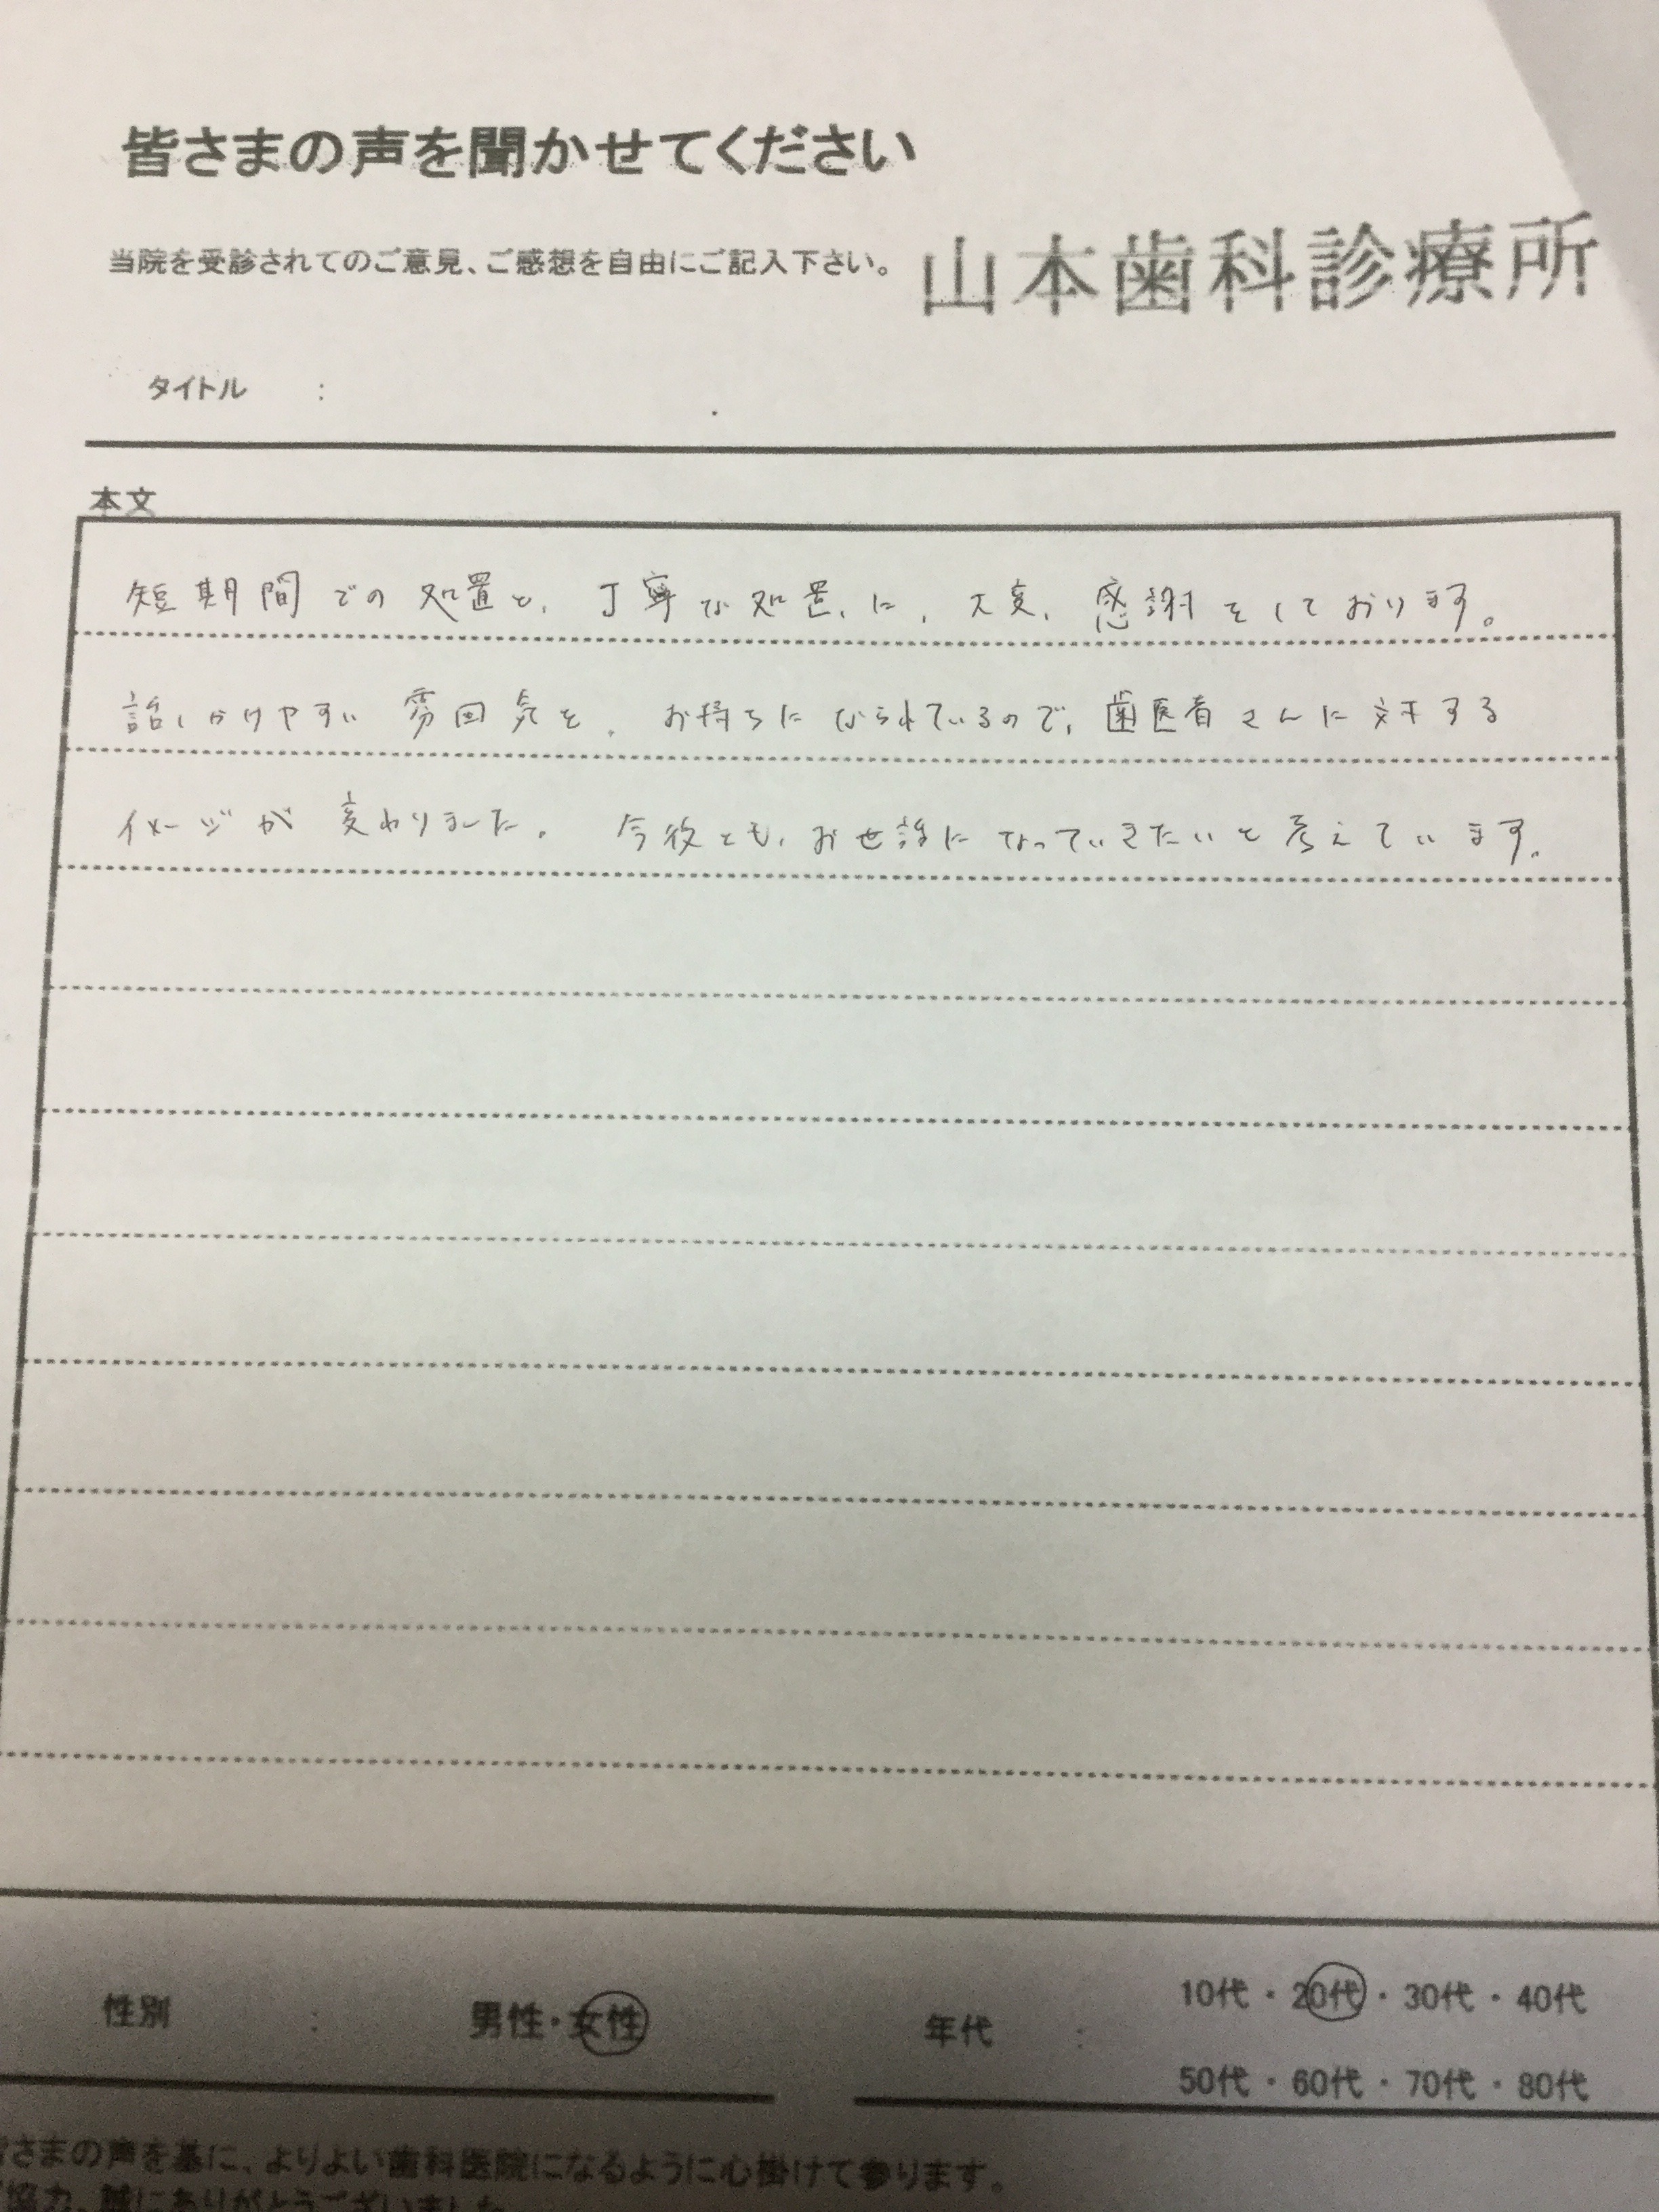 皆さまの声を聞かせてください
当院を受診されてのご意見、ご感想を自由にご記入下さい。 山本歯科診療所
タイトル :
本文
短期間での処置と、丁寧な処置、に、大変、感謝をしております。
話しかけやすい雰囲気を、お持ちになられているので、歯医者さんに対する
イメージが変わりました。今後とも、お世話になっていきたいと考えています。
性別 : 男性・女性 年代 : 10代・20代・30代・40代
50代・60代・70代・80代
さまの声を基に、よりよい歯科医院になるように心掛けて参ります。
協力、誠にありがとうございました